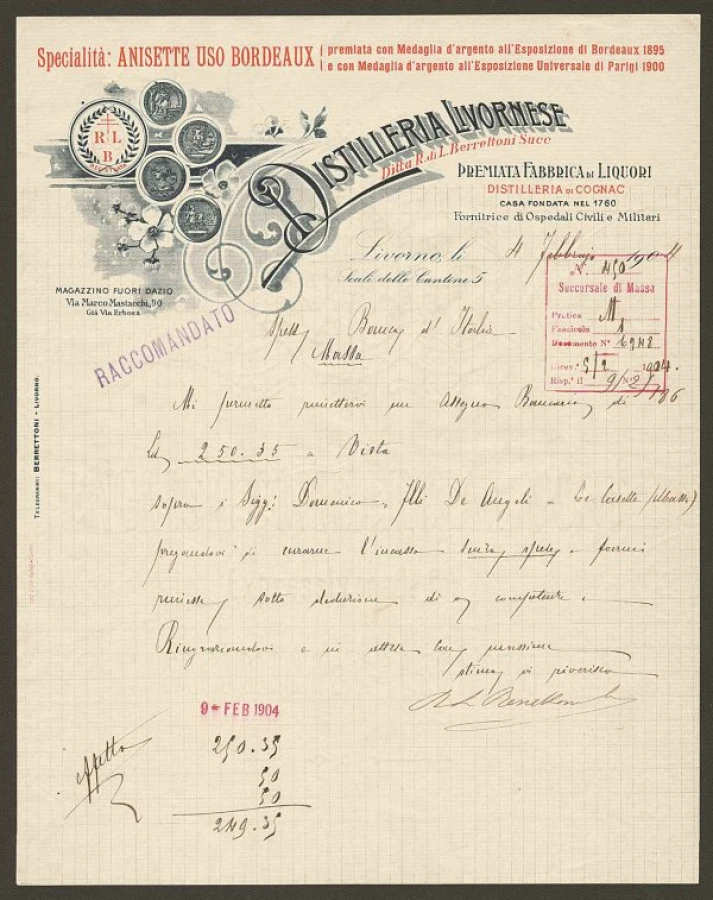 Specialità: ANISETTE USO BORDEAUX
premiata con Medaglia d'argento all'Esposizione di Bordeaux 1895
e con Medaglia d'argento all'Esposizione Universale di Parigi 1900
R L
B
DISTILLERIA LIVORNESE
Ditta R. di L. Berrettoni Succ
PREMIATA FABBRICA DI LIQUORI
DISTILLERIA DI COGNAC
CASA FONDATA NEL 1760
Fornitrice di Ospedali Civili e Militari
MAGAZZINO FUORI DAZIO
Via Marco Mastacchi, 90
Già Via Erbosa
Livorno, li 4 Febbraio 1904
Scali delle Cantine 5
N. 450
Succursale di Massa
Pratica M
Fascicolo 1
Documento N° 6948
Ricev. 5/2 1904.
Risp.ª il 9/2 N°
RACCOMANDATO
Spett Banca d'Italia
Massa
TELEGRAMMI: BERRETTONI - LIVORNO.
Mi permetto rimettervi un assegno Bancario di
250.35 a Vista
sopra i Sigg: Domenico, Flli De Angeli
pregandovi di curarne l'incasso senza spese e farmi
rimessa sotto deduzione di competenze.
Ringraziandovi e in attesa con massima
stima vi riverisco
9 - FEB 1904
250.35
50
50
249.35